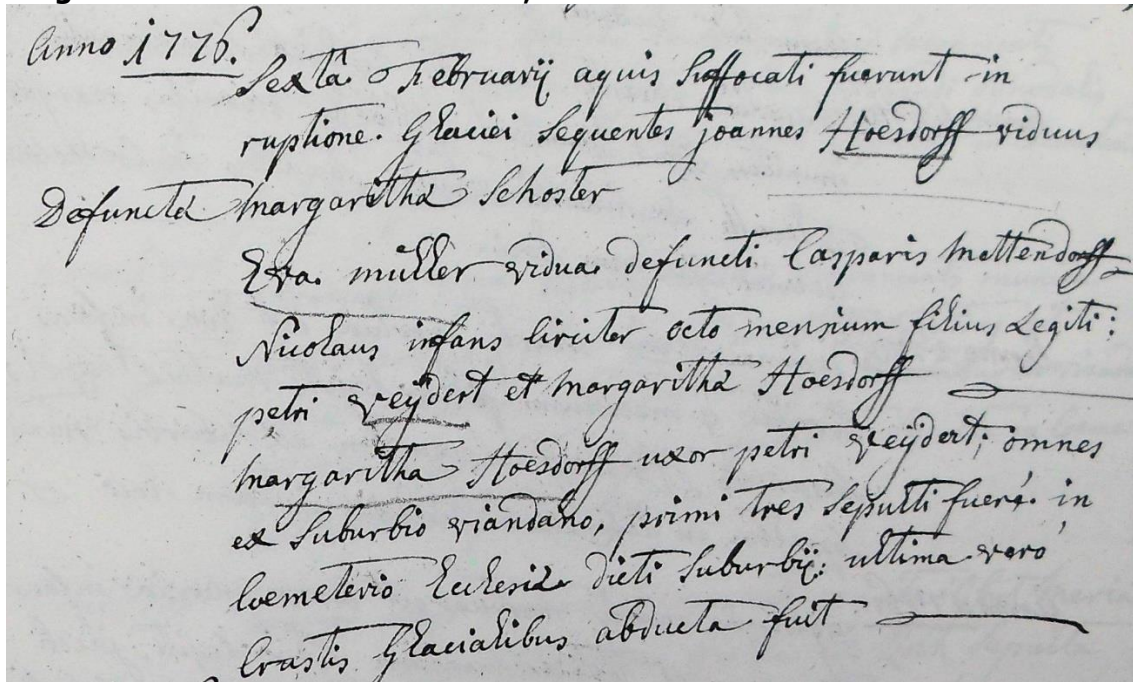 Anno 1776.
Sexta Februarij aquis suffocati fuerunt in
ruptione Glaciei sequentes joannes Hoesdorff viduus
Defunctæ margarithæ Schoster
Eva müller vidua defuncti Casparis mettendorff
Nicolaus infans circiter octo mensium filius Legiti:
petri veÿdert et margarithæ Hoesdorff
margaritha Hoesdorff uxor petri veÿdert; omnes
ex suburbio viandano, primi tres sepulti fuerė. in
Coemeterio Ecclesiæ dicti suburbij: ultima vero
Crastis Glacialibus abducta fuit